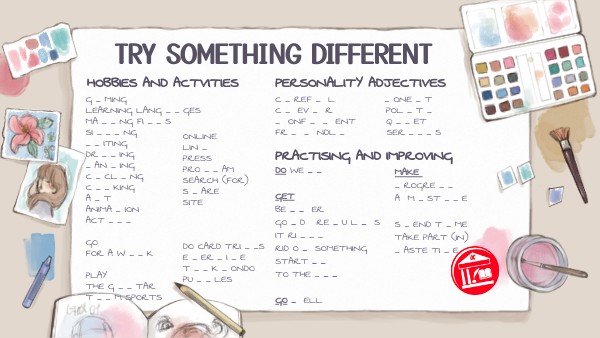 TRY SOMETHING DIFFERENT
HOBBIES AND ACTVITIES
G _ MING
LEARNING LANG _ _ GES
MA _ _ NG FI _ _ S
SI _ _ _ NG
_ _ ITING
DR _ _ ING
_ AN _ ING
C _ CL _ NG
C _ _ KING
A _ T
ANIMA _ ION
ACT _ _ _
GO
FOR A W _ _ K
PLAY
THE G _ _ TAR
T _ _ M SPORTS
ONLINE
LIN _
PRESS
PRO _ _ AM
SEARCH (FOR)
S _ ARE
SITE
DO CARD TRI _ _ S
E _ ER _ I _ E
T _ _ K _ ONDO
PU _ _ LES
PERSONALITY ADJECTIVES
C _ REF _ L
C _ EV _ R
_ ONF _ _ ENT
FR _ _ NDL _
_ ONE _ T
POL _ T _
Q _ _ ET
SER _ _ _ S
PRACTISING AND IMPROVING
DO WE _ _
GET
BE _ _ ER
GO _ D RE _ U L _ S
IT RI _ _ _
RID O _ SOMETHING
START _ _
TO THE _ _ _
GO _ ELL
MAKE
_ ROGRE _ _
A M _ ST _ _ E
S _ END T _ ME
TAKE PART (IN)
_ ASTE TI _ E